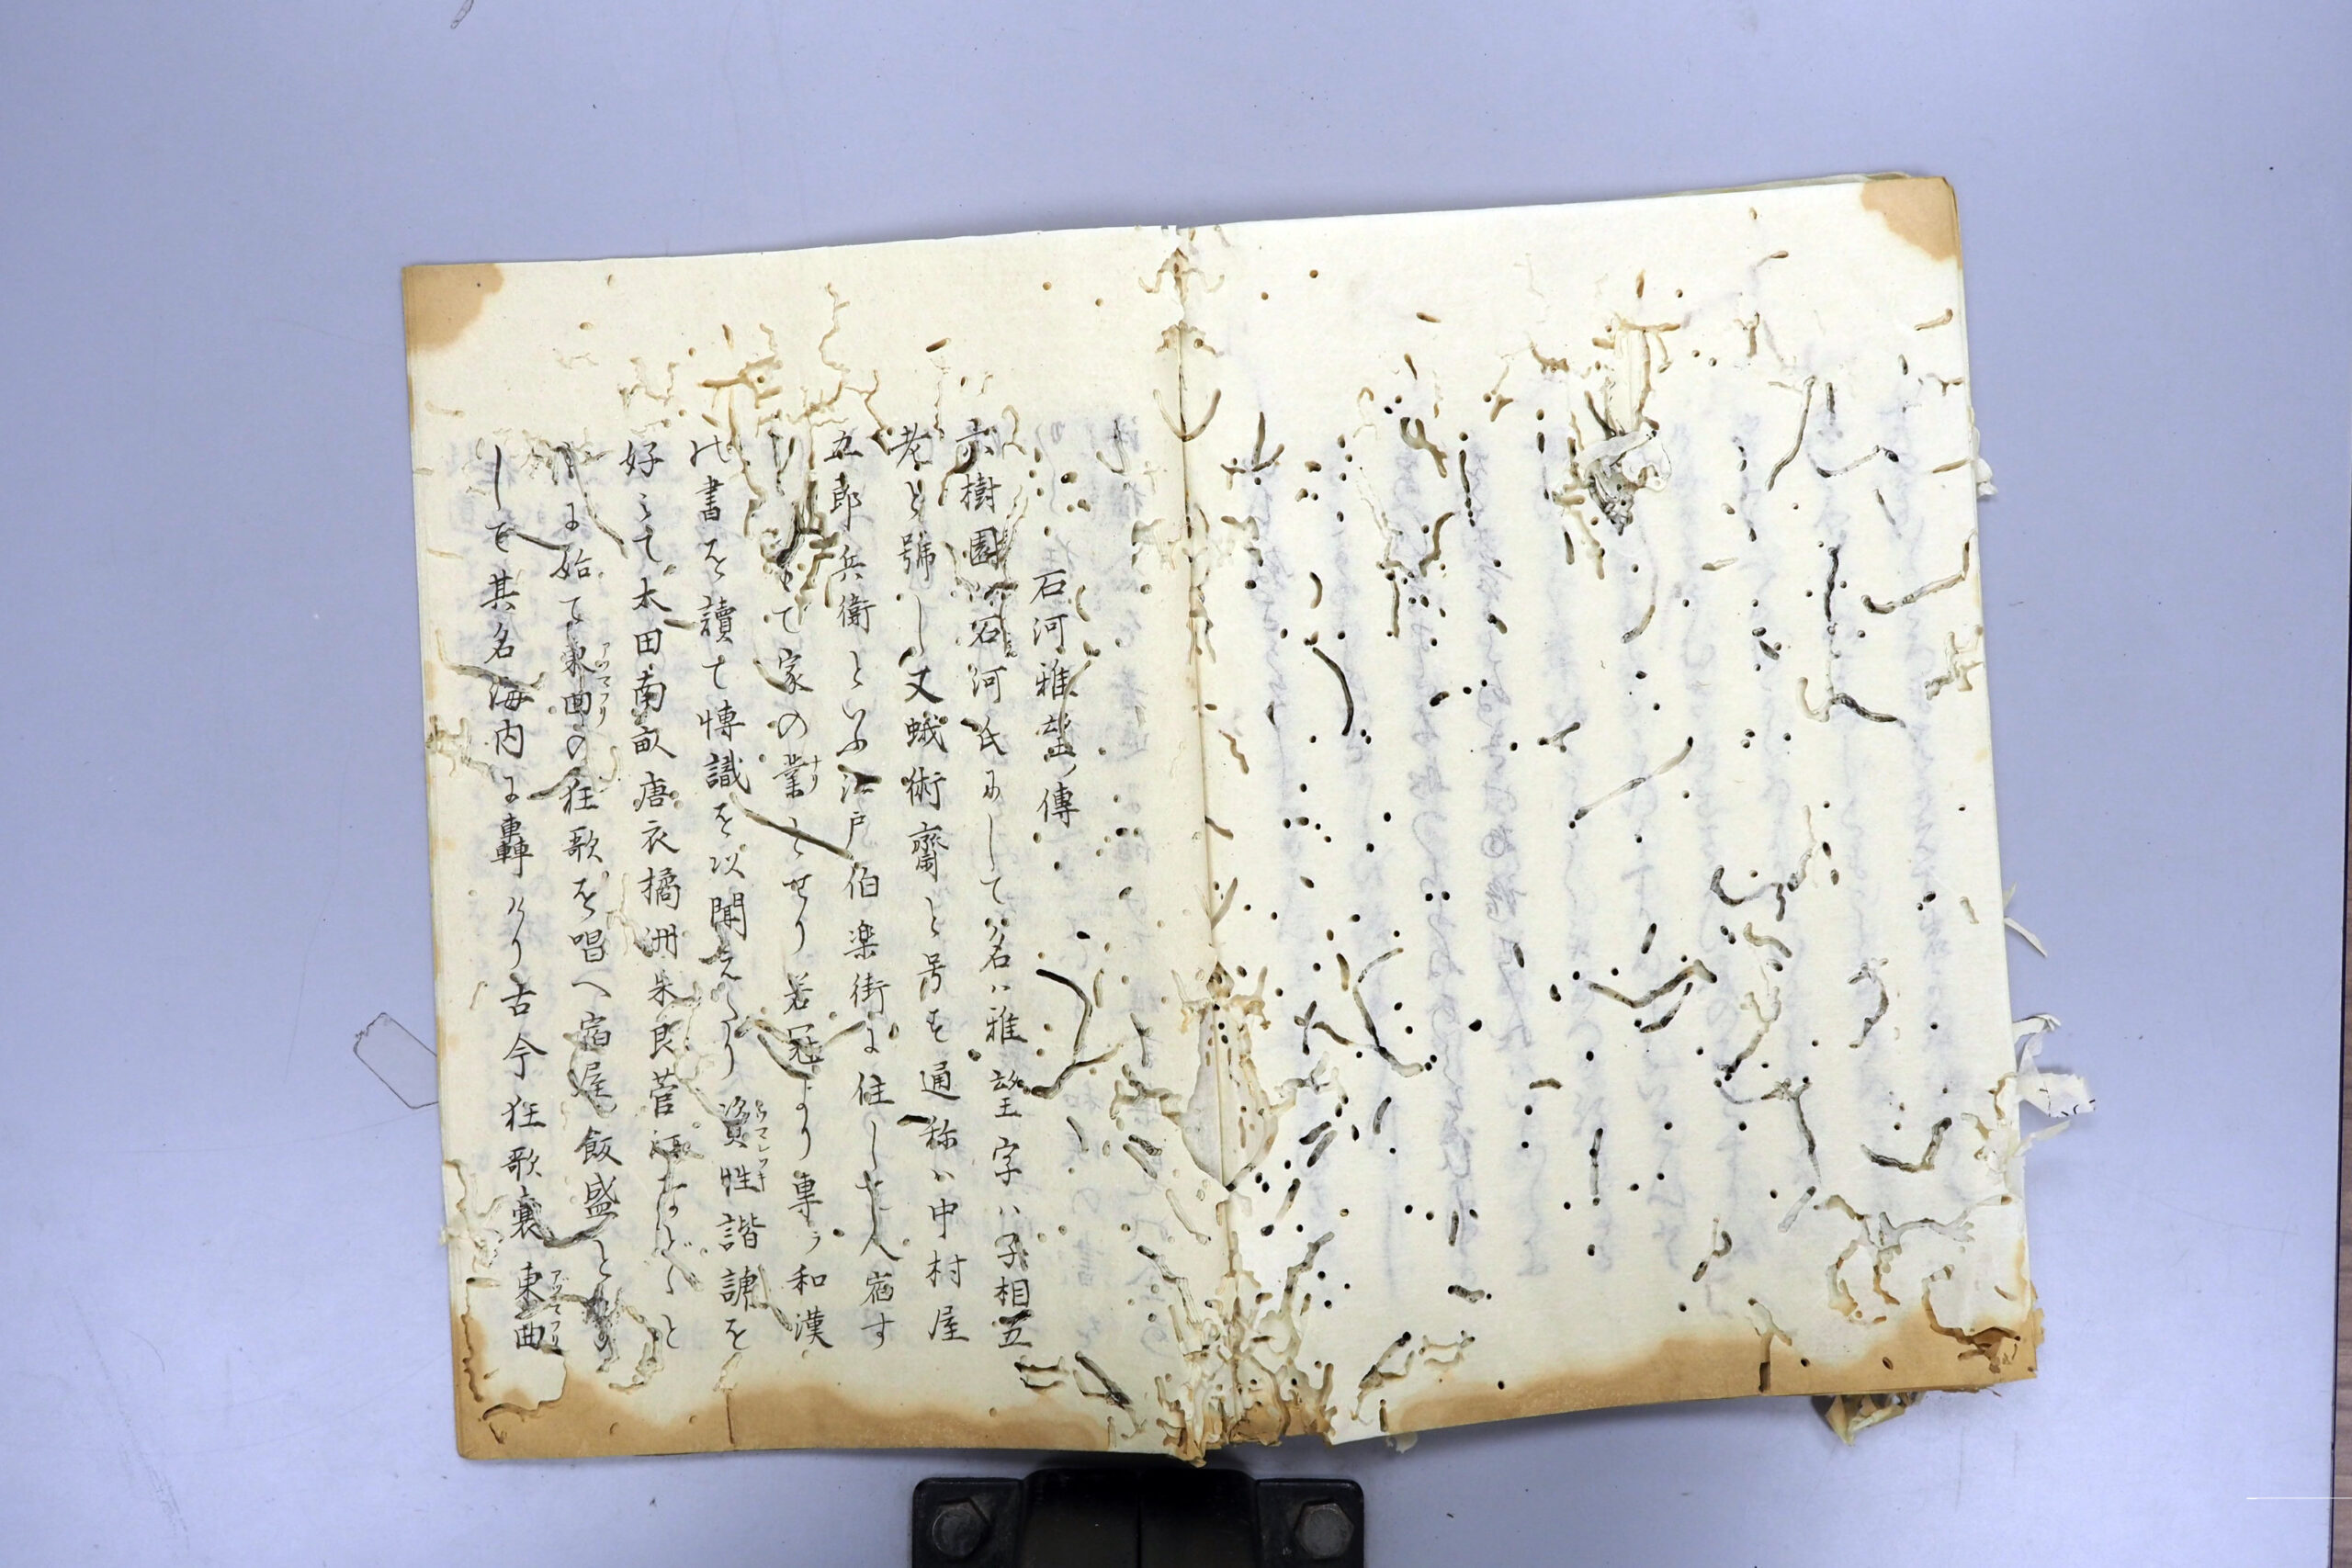 石河雅望ノ傳
六樹園ハ石河氏にして名ハ雅望字ハ子相五
老と號し又蛾術齋と号す通称ハ中村屋
五郎兵衛といふ江戸伯楽街に住し人宿す
て家の業ナリとせり若冠より専ラ和漢
の書を讀て博識を以聞えたり資性ウマレツキ諧謔を
好ミて太田南畝唐衣橘洲朱良菅江などゝと
に始て東曲アツマフリの狂歌を唱へ宿屋飯盛と
しを其名海内に轟けり古今狂歌裏東曲アツマフリ